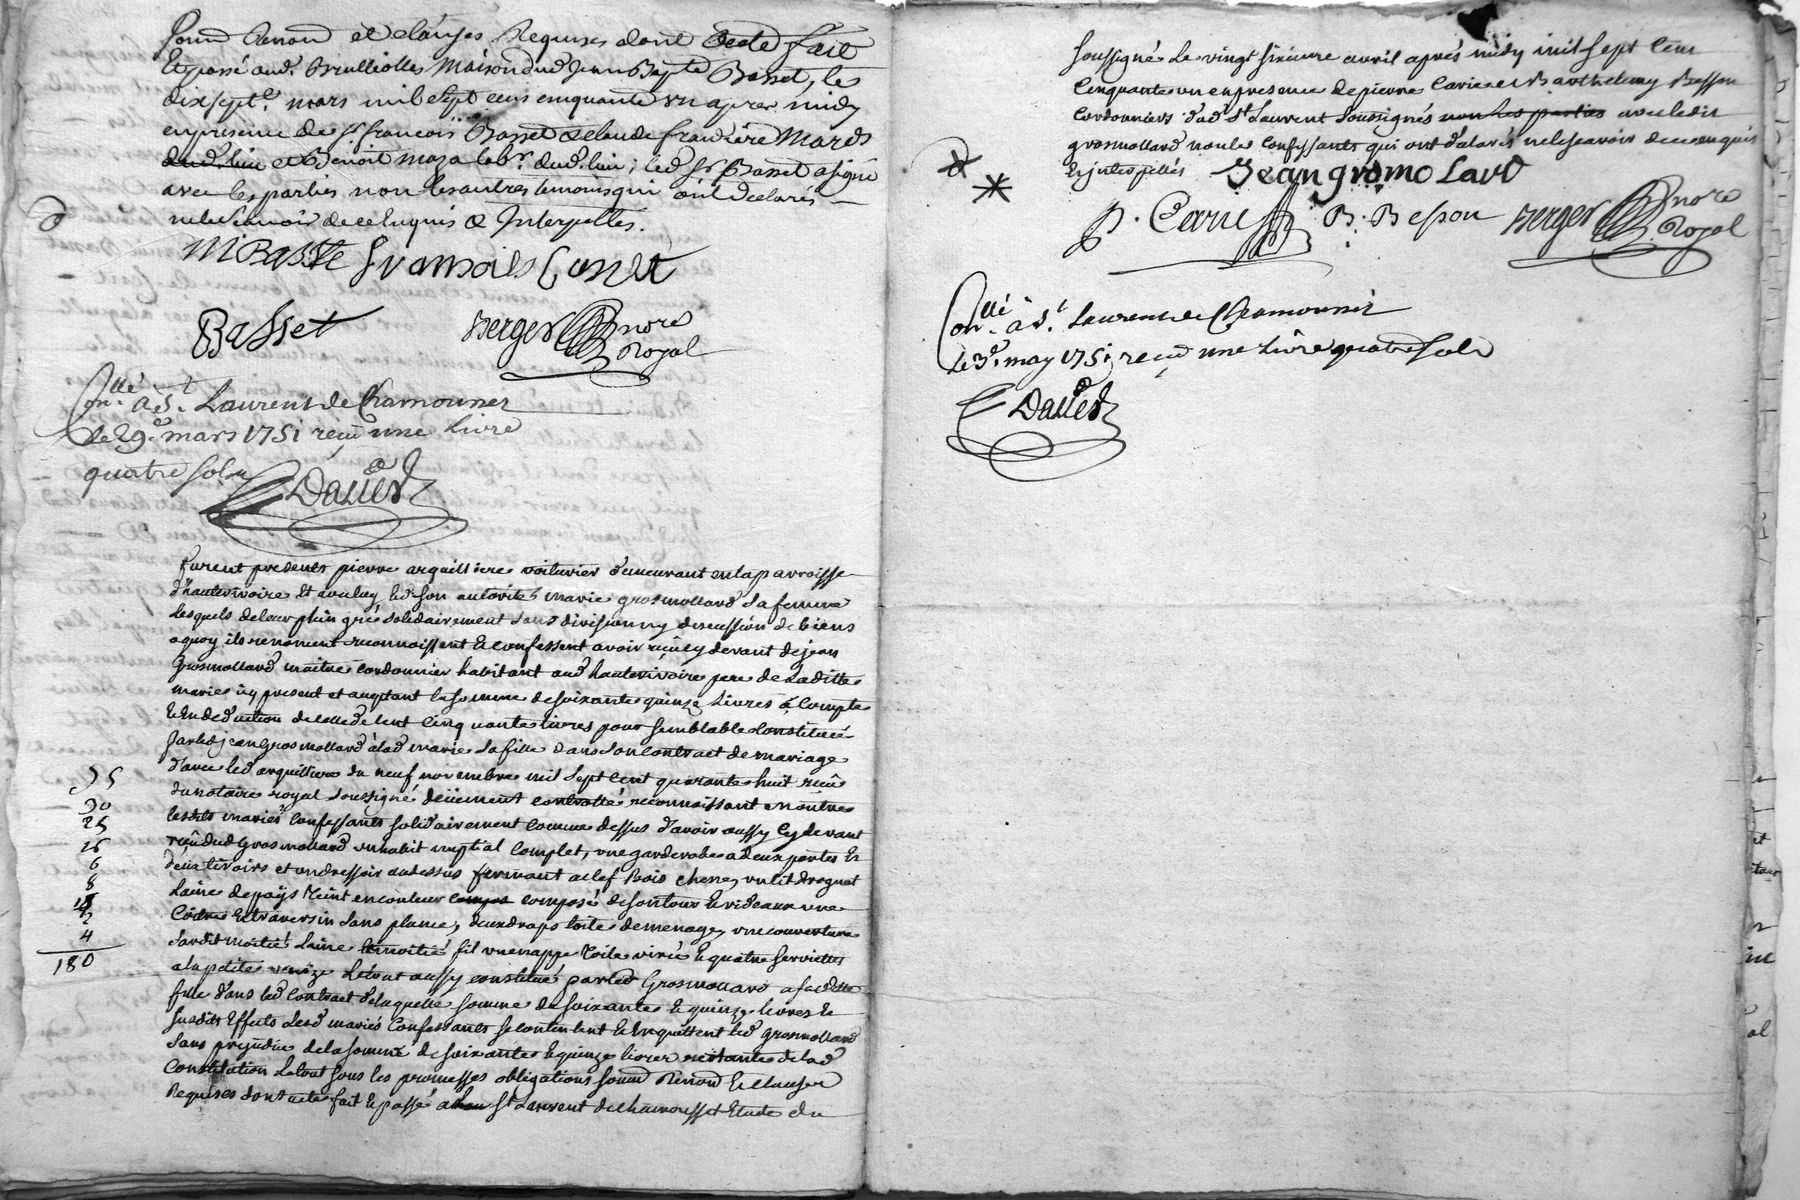 soumd Renond et clauses Requises dont Acte fait
Et passé aud. Brulliolles Maison dud Jean Bapte Basset, le
dix sept.e mars mil Sept cens cinquante un apres midy
en presence de Sr francois Basset
dud. lieu et Benoit maza labr. dud. lieu; led Sr Basset a signé
avec les parties non les autres temoins qui ont declarés
ne le Scavoir de ce Enquis & Interpellés.
M Basset francois
Basset Berger nore
Royal
Conllé à St. Laurent de Chamousset
le 29e mars 1751 reçu une Livre
quatre sols
Daved
furent presents pierre arquilliere voiturier demeurant en la parroisse
d'hauterivoire Et avec luy led son autorité marie grosmollard sa femme
Lesquels de leur plein gré solidairement sans division ny discussion de biens
a quoy ils renoncent reconnoissent Et confessent avoir reçu cy devant de jean
Grosmollard maitre cordonnier habitant aud hauterivoire pere de Laditte
marie icy present et acceptant la somme de soixante quinze Livres à compte
Et En deduction de celle de Cent Cinquante livres pour semblable Constituée
par led jean Grosmollard à lad marie sa fille dans son contract de mariage
d'avec led arquilliere du neuf novembre mil sept Cent quarante huit reçu
du notaire royal soussigné deüement controllé reconnoissant en outre
lesdits mariés Confessants solidairement comme dessus d'avoir aussy Cy devant
reçu dud Grosmollard un habit nuptial Complet, une garderobe a deux portes Et
deux tiroirs et un dressoir au dessus fermant a clef Bois chesne, un lit droguet
Laine de pays teint en couleur composé de son tour Et rideaux une
Coitre Et traversin sans plume, deux draps toile de menage, une couverture
sardit moitié Laine Et moitié fil une nappe toile Et quatre serviettes
a la petite venize Le tout aussy constitué par led Grosmollard a sa ditte
fille dans led Contract de laquelle somme de soixante Et quinze livres Et
susdits Effects Lesd mariés Confessants se contentent Et En quittent led Grosmollard
sans prejudice de la somme de soixante Et quinze livres restantes de lad
Constitution Le tout sous les promesses obligations soumd Renond Et clauses
Requises dont acte fait Et passé a St Laurent de chamousset Etude du
75
30
25
16
6
8
2
4
180
soussigné Le vingt sixieme avril après midy mil sept Cent
Cinquante un en presence de pierre Carie et Barthelemy Besson
Cordonniers dud St Laurent soussignés non les parties avec ledit
grosmollard non les Confessants qui ont déclarés ne le scavoir de ce enquis
Et jnterpellés Jean gromolard
P. Carie B. Beson Berger nore
Royal
Conllé à St. Laurent de Chamousset
le 3e. may 1751 reçu une Livre quatre sols
Daved